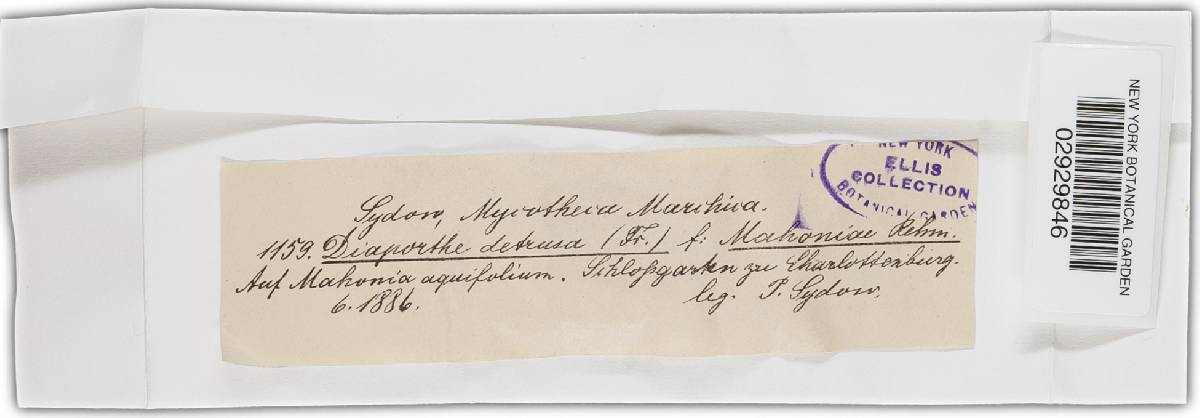 Sydow, Mycotheca Marchica.
1159. Diaporthe detrusa (Fr.) f: Mahoniae Rehm.
Auf Mahonia aquifolium. Schloßgarten zu Charlottenburg.
6. 1886. leg. P. Sydow.
NEW YORK
ELLIS
COLLECTION
BOTANICAL GARDEN
NEW YORK BOTANICAL GARDEN
02929846